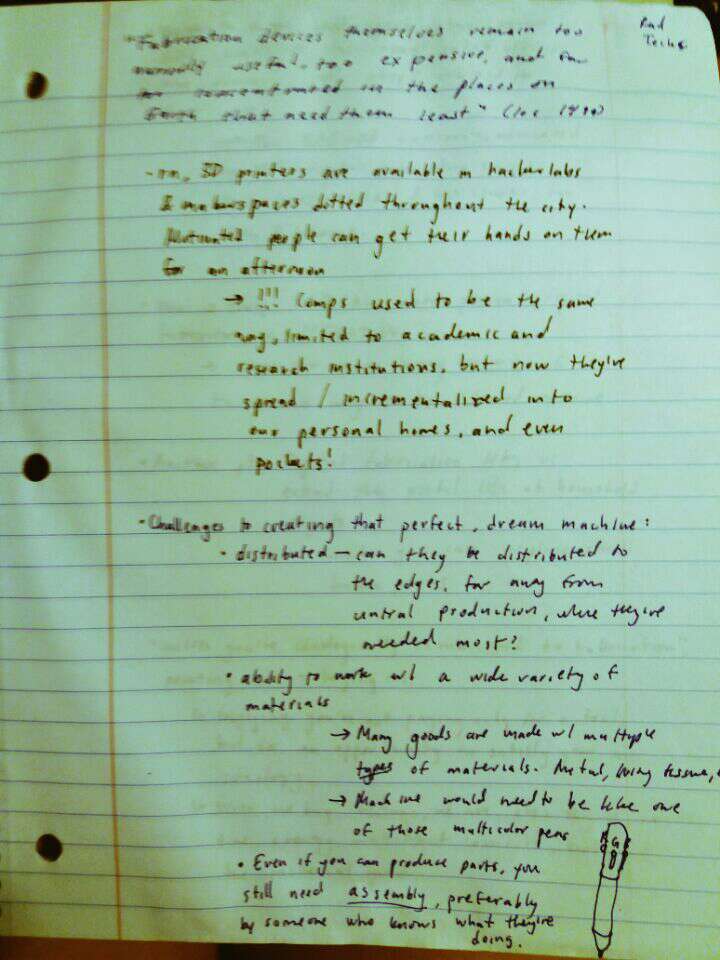 Rad
Techs
"Fabrication devices themselves remain too
useful, too expensive, and
concentrated in the places on
Earth that need them least" (loc
3D printers are available in hackerlabs
& makerspaces dotted throughout the city.
Motivated people can get their hands on them
for an afternoon
→ !!! Comps used to be the same
way, limited to academic and
research institutions, but now they're
spread / incrementalized into
our personal homes, and even
pockets!
• Challenges to creating that perfect, dream machine:
• distributed — can they be distributed to
the edges, far away from
central production, where they're
needed most?
• ability to work w/ a wide variety of
materials
→ Many goods are made w/ multiple
types of materials. Metal, living tissue,
→ Machine would need to be like one
of those multicolor pens
• Even if you can produce parts, you
still need assembly, preferably
by someone who knows what they're
doing.